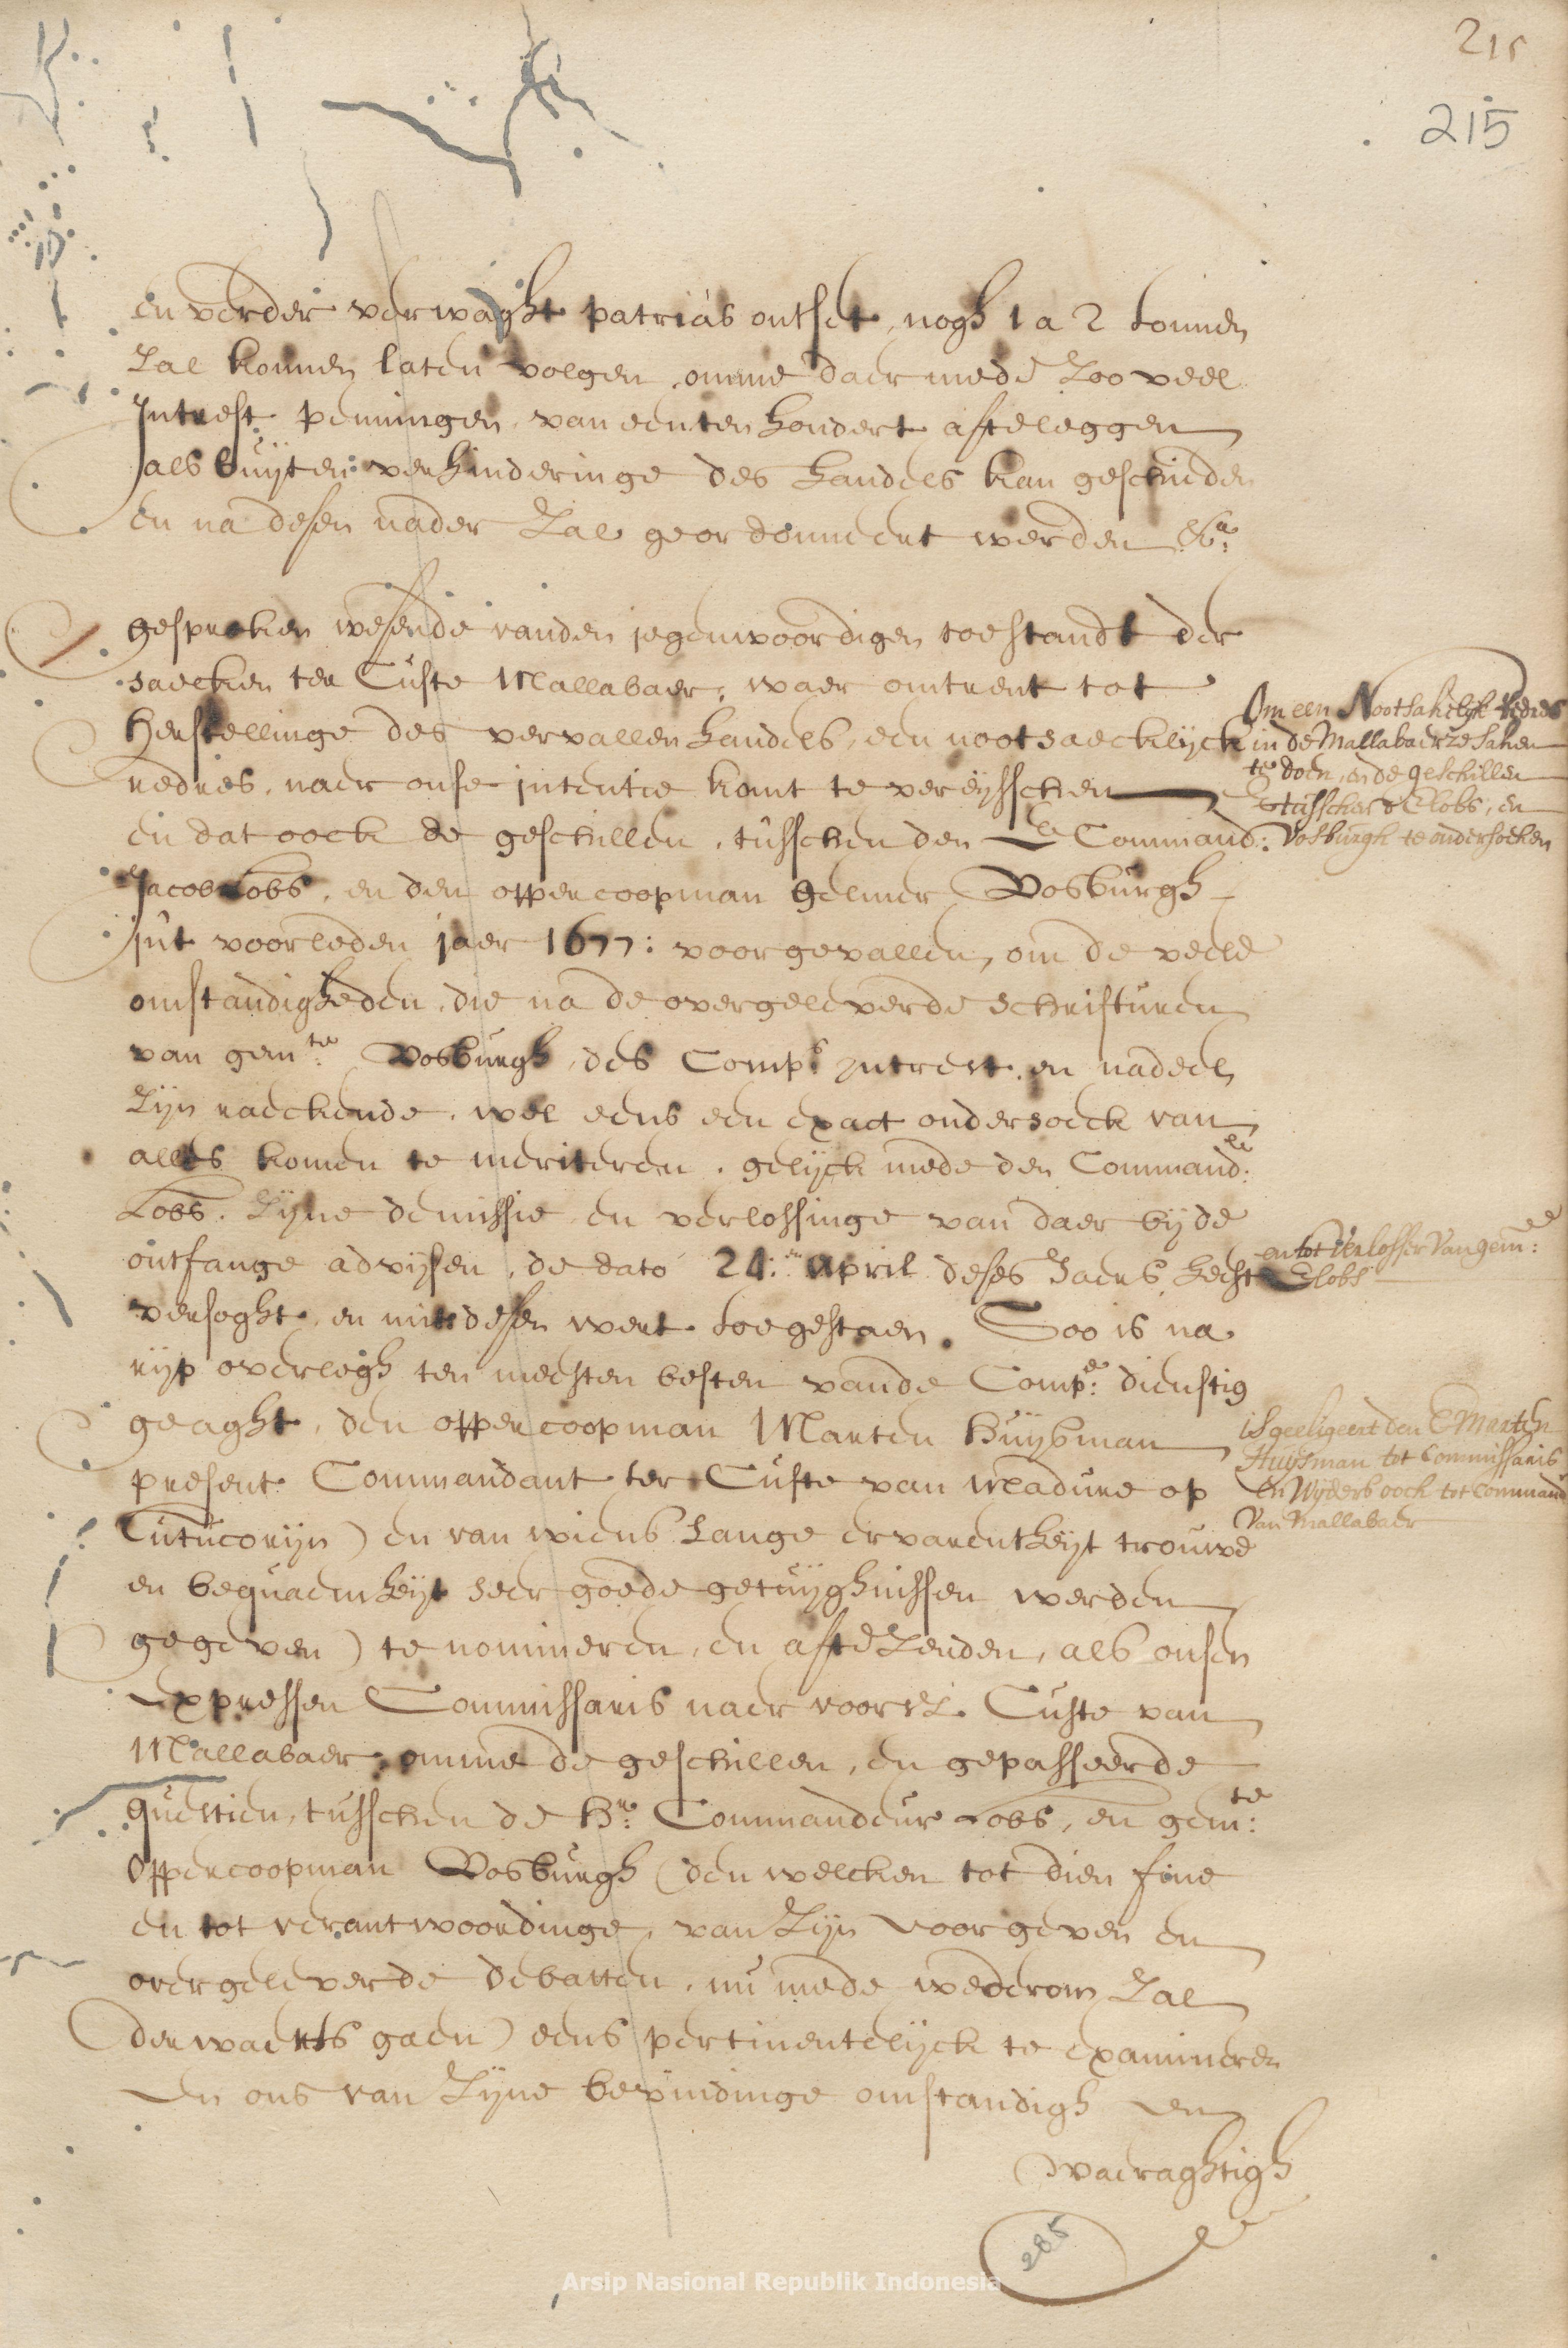 215
215
en verder verwaght patrias ontset, nogh 1 a 2 tonnen
zal konnen laten volgen, omme daer mede zoo veel
Intrest penningen, van een ten hondert afteleggen
als buijten verhinderinge des handels kan geschieden
en na desen nader zal geordonneert werden &a:
gesproken wesende vanden jegenwoordigen toestandt der
saecken ter Custe Mallabaer, waer omtrent tot
herstellinge des vervallen handels, een nootsaecklijck
redres, naer onse intentie komt te vereijsschen
en dat oock de geschillen, tusschen den E Command:
Jacob Lobs, en den oppercoopman Gelmer Vosburgh
int voorleden jaer 1677: voorgevallen, om de veele
omstandigheden, die na de overgeleverde schrifturen
van gemte: Vosburgh, des Comps: intrest, en nadeel
zijn raeckende, wel eens een exact ondersoeck van
alles komen te meriteren, gelijck mede den Command:
Lobs, zijne demissie en verlossinge van daer bij de
ontfange advijsen, de dato 24:en April deses Jaers, heeft
versoght, en mits desen wert toegestaen. Soo is na
rijp overlegh ten meesten besten vande Compe: dienstig
geaght, den oppercoopman Marten Huijsman
present Commandant ter Custe van Madure op
Tutucorijn) en van wiens lange ervarentheijt trouwe
en bequaemheijt seer goede getuijghnissen werden
gegeven) te nomineren, en aftezenden, als onsen
Expressen Commissaris naer voorsz. Custe van
Mallabaer, omme de geschillen, en gepasseerde
questien, tusschen de Hr: Commandeur Lobs, en gemte:
Oppercoopman Vosburgh (den welcken tot dien fine
en tot verantwoordinge, van zijn voorgeven en
overgeleverde debatten, nu mede wederom zal
derwaerts gaen) eens pertinentelijck te examineren
en ons van zijne bevindinge omstandigh en
waeraghtigh
Om een Nootsakelijk redres
in de Mallabaerze saken
te doen, en de geschillen
tusschen d' E Lobs, en
Vosburgh te ondersoeken
en tot verlosser van gem:
E Lobs
is geeligeert den E Marten
Huijsman tot Commissaris
en Wijders oock tot Command
van Mallabaer
285
Arsip Nasional Republik Indonesia